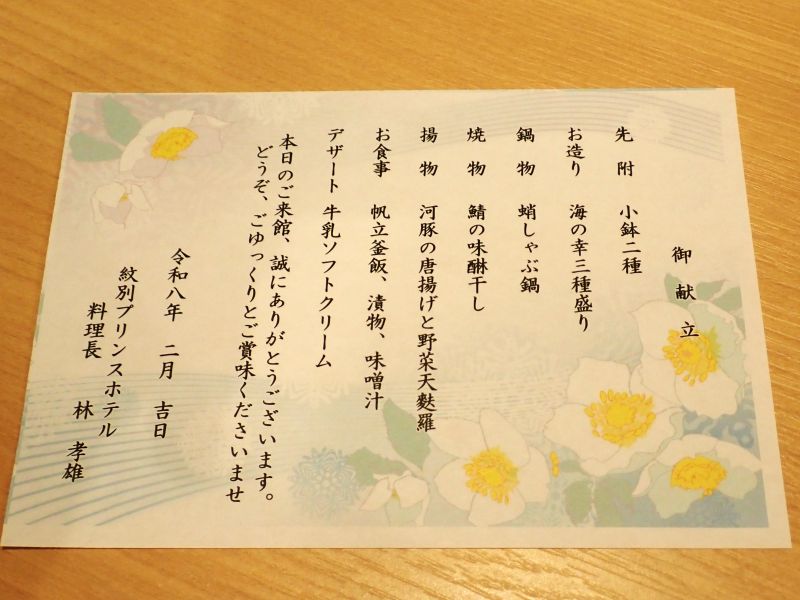 御献立
先附 小鉢二種
お造り 海の幸三種盛り
鍋物 蛸しゃぶ鍋
焼物 鯖の味醂干し
揚物 河豚の唐揚げと野菜天麩羅
お食事 帆立釜飯、漬物、味噌汁
デザート 牛乳ソフトクリーム
本日のご来館、誠にありがとうございます。
どうぞ、ごゆっくりとご賞味くださいませ
令和八年 二月 吉日
紋別プリンスホテル
料理長 林 孝雄